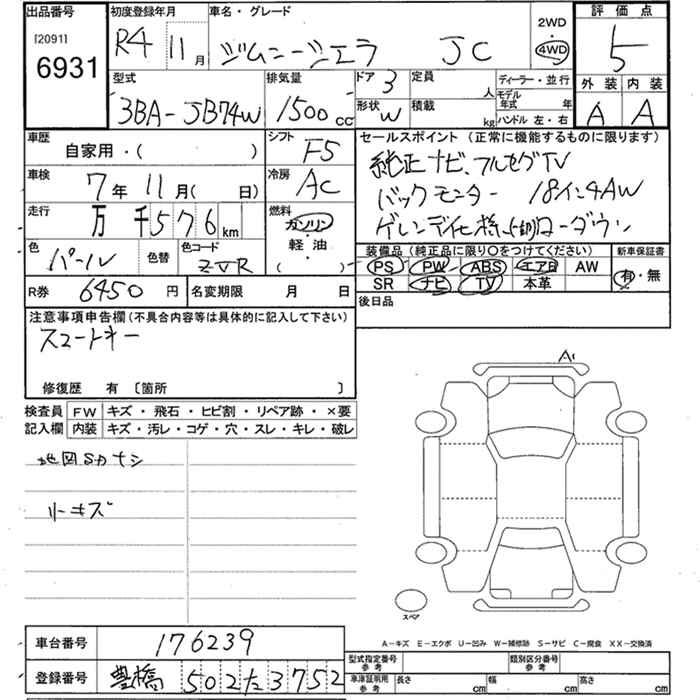 出品番号
[2091]
6931
初度登録年月
R4 11月
車名・グレード
ジムニーシエラ JC
2WD
・
4WD
評価点
5
外装 内装
A A
型式
3BA-JB74W
排気量
1500cc
ドア 3
形状 W
定員 人
積載 kg
ディーラー・並行
モデル年式 年
ハンドル 左・右
車歴
自家用・( )
シフト
F5
セールスポイント(正常に機能するものに限ります)
純正ナビ、フルセグTV
バックモニター 18インチAW
ゲレンデ仕様
ローダウン
車検
7年11月( 日)
冷房
AC
走行
万千576km
燃料
ガソリン
軽油
( ・ )
色
パール
色替
色コード
ZVR
装備品(純正品に限り○をつけてください)
PS PW ABS エアB AW
SR ナビ TV 本革
新車保証書
有・無
R券 6450円
名変期限 月 日
後日品
注意事項申告欄(不具合内容等は具体的に記入して下さい)
スマートキー
修復歴 有〔箇所 〕
検査員 FW キズ・飛石・ヒビ割・リペア跡・×要
記入欄 内装 キズ・汚レ・コゲ・穴・スレ・キレ・破レ
地図SDナシ
リーキズ
A1
スペア
A-キズ E-エクボ U-凹み W-補修跡 S-サビ C-腐食 XX-交換済
車台番号 176239
登録番号 豊橋 502 た 3752
型式指定番号 参考
類別区分番号 参考
車庫証明用 参考
長さ cm 幅 cm 高さ cm